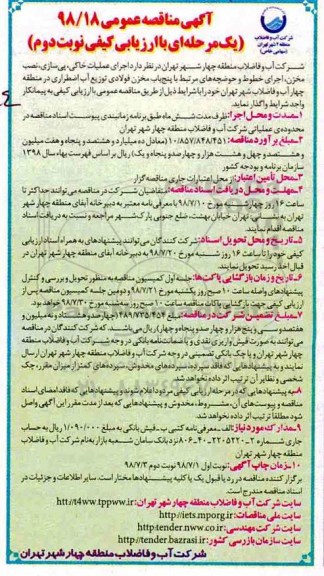 شرکت آب و فاضلاب
منطقه ۴ شهر تهران
(سهامی خاص)
آگهی مناقصه عمومی ۹۸/۱۸
(یک مرحله‌ای با ارزیابی کیفی نوبت دوم)
شرکت آب و فاضلاب منطقه چهار شهر تهران در نظر دارد اجرای عملیات خاکی، پی‌سازی، نصب
مخزن، اجرای خطوط و حوضچه‌های مرتبط با پنج باب مخزن فولادی توزیع آب اضطراری در منطقه
چهار آب و فاضلاب شهر تهران خود را با شرایط ذیل از طریق مناقصه عمومی با ارزیابی کیفی به پیمانکار
واجد شرایط واگذار نماید.
۱-مدت و محل اجرا: ظرف مدت شش ماه طبق برنامه زمانبندی پیوست اسناد مناقصه در
محدوده‌ی عملیاتی شرکت آب و فاضلاب منطقه چهار شهر تهران
۲-مبلغ برآورد مناقصه: ۱۰/۸۵۷/۸۴۸/۴۵۱ (معادل ده میلیارد و هشتصد و پنجاه و هفت میلیون
و هشتصد و چهل و هشت هزار و چهارصد و پنجاه و یک) ریال بر اساس فهرست بهاء سال ۱۳۹۸
سازمان برنامه و بودجه کشور
۳-محل تأمین اعتبار: از محل اعتبارات جاری مناقصه‌گزار
۴-مهلت و محل دریافت اسناد مناقصه: متقاضیان شرکت در مناقصه می‌توانند حداکثر تا
ساعت ۱۶ روز چهارشنبه مورخ ۹۸/۷/۱۰ با معرفی‌نامه معتبر به دبیرخانه آبفای منطقه چهار شهر
تهران به نشانی تهران خیابان بهشت، ضلع جنوبی پارک شهر مراجعه و نسبت به دریافت اسناد
مناقصه اقدام نمایند.
۵-تاریخ و محل تحویل اسناد: شرکت کنندگان می‌توانند پیشنهادهای به همراه اسناد ارزیابی
کیفی خود را تا ساعت ۱۶ روز شنبه مورخ ۹۸/۷/۲۰ به دبیرخانه آبفای منطقه چهار شهر تهران در
قبال اخذ رسید تحویل نمایند.
۶-تاریخ و زمان بازگشایی پاکت‌ها: جلسه اول کمیسیون مناقصه به منظور تحویل و بررسی و کنترل
پیشنهادهای واصله ساعت ۱۰ صبح روز یکشنبه مورخ ۹۸/۷/۲۱ و دومین جلسه کمیسیون مناقصه پس از
ارزیابی کیفی جهت بازگشایی پاکات مناقصه ساعت ۱۰ صبح روز سه‌شنبه مورخ ۹۸/۷/۳۰ خواهد بود.
۷-مبلغ تضمین شرکت در مناقصه: مبلغ
می‌توانند به صورت فیش واریزی نقدی و یا ضمانت‌نامه بانکی در وجه شرکت آب و فاضلاب منطقه
چهار شهر تهران و یا چک بانکی تضمینی در وجه شرکت آب و فاضلاب منطقه چهار شهر تهران ارسال
نمایند و به پیشنهادهایی که فاقد سپرده، سپرده‌های مخدوش، سپرده‌های کمتر از میزان مقرر، چک
شخصی و نظایر آن ترتیب اثر داده نخواهد شد.
۸-به پیشنهادهایی که در مرحله ارزیابی کیفی مردود اعلام شوند و پیشنهادهایی که فاقد امضای اسناد
مناقصه و پیوست‌های آن، مشروط، مخدوش و پیشنهادهایی که بعد از مدت مقرر این آگهی واصل
شود مطلقاً ترتیب اثر داده نخواهد شد.
۹-مدارک مورد نیاز: الف_معرفی‌نامه کتبی ب_فیش بانکی به مبلغ ۱/۰۹۰/۰۰۰ ریال به حساب
جاری شماره
منطقه چهار شهر تهران
۱۰-زمان چاپ آگهی: نوبت اول ۹۸/۷/۱ نوبت دوم ۹۸/۷/۳
برگزار کننده مناقصه در رد یا قبول یک یا کلیه پیشنهادها مختار است. سایر اطلاعات و جزئیات در
اسناد مناقصه مندرج است.
سایت شرکت آب و فاضلاب منطقه چهار شهر تهران: htt/t4ww.tppww.ir
سایت ملی مناقصات: http://iets.mporg.ir
سایت شرکت مهندسی: http:tender.nww.co.ir
سایت سازمان بازرسی کشور: http://tender.bazrasi.ir
شرکت آب و فاضلاب منطقه چهار شهر تهران